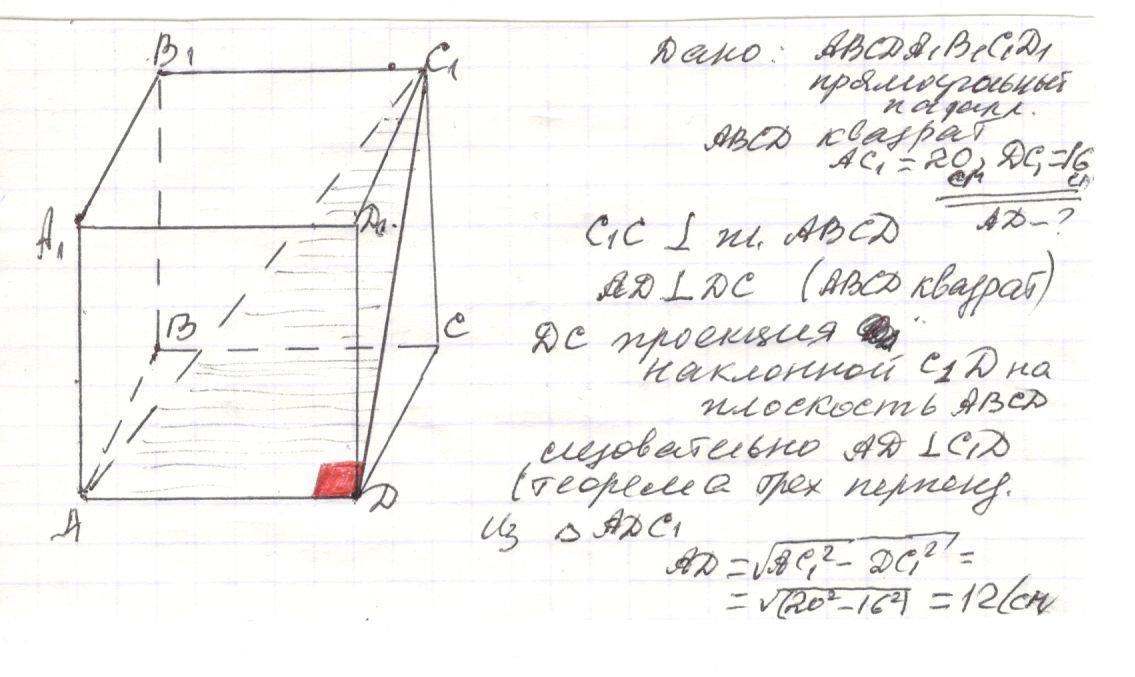 B1
C1
A1
D1
B
C
A
D
Дано: ABCDA1B1C1D1
прямоугольный
паралл.
ABCD квадрат
AC1=20, DC1=16
см см
AD-?
C1C ⊥ пл. ABCD
AD ⊥ DC (ABCD квадрат)
DC проекция
наклонной C1D на
плоскость ABCD
следовательно AD ⊥ C1D
(теорема трех перпенд.
Из △ ADC1
AD = √AC1² - DC1² =
= √(20²-16²) = 12(см